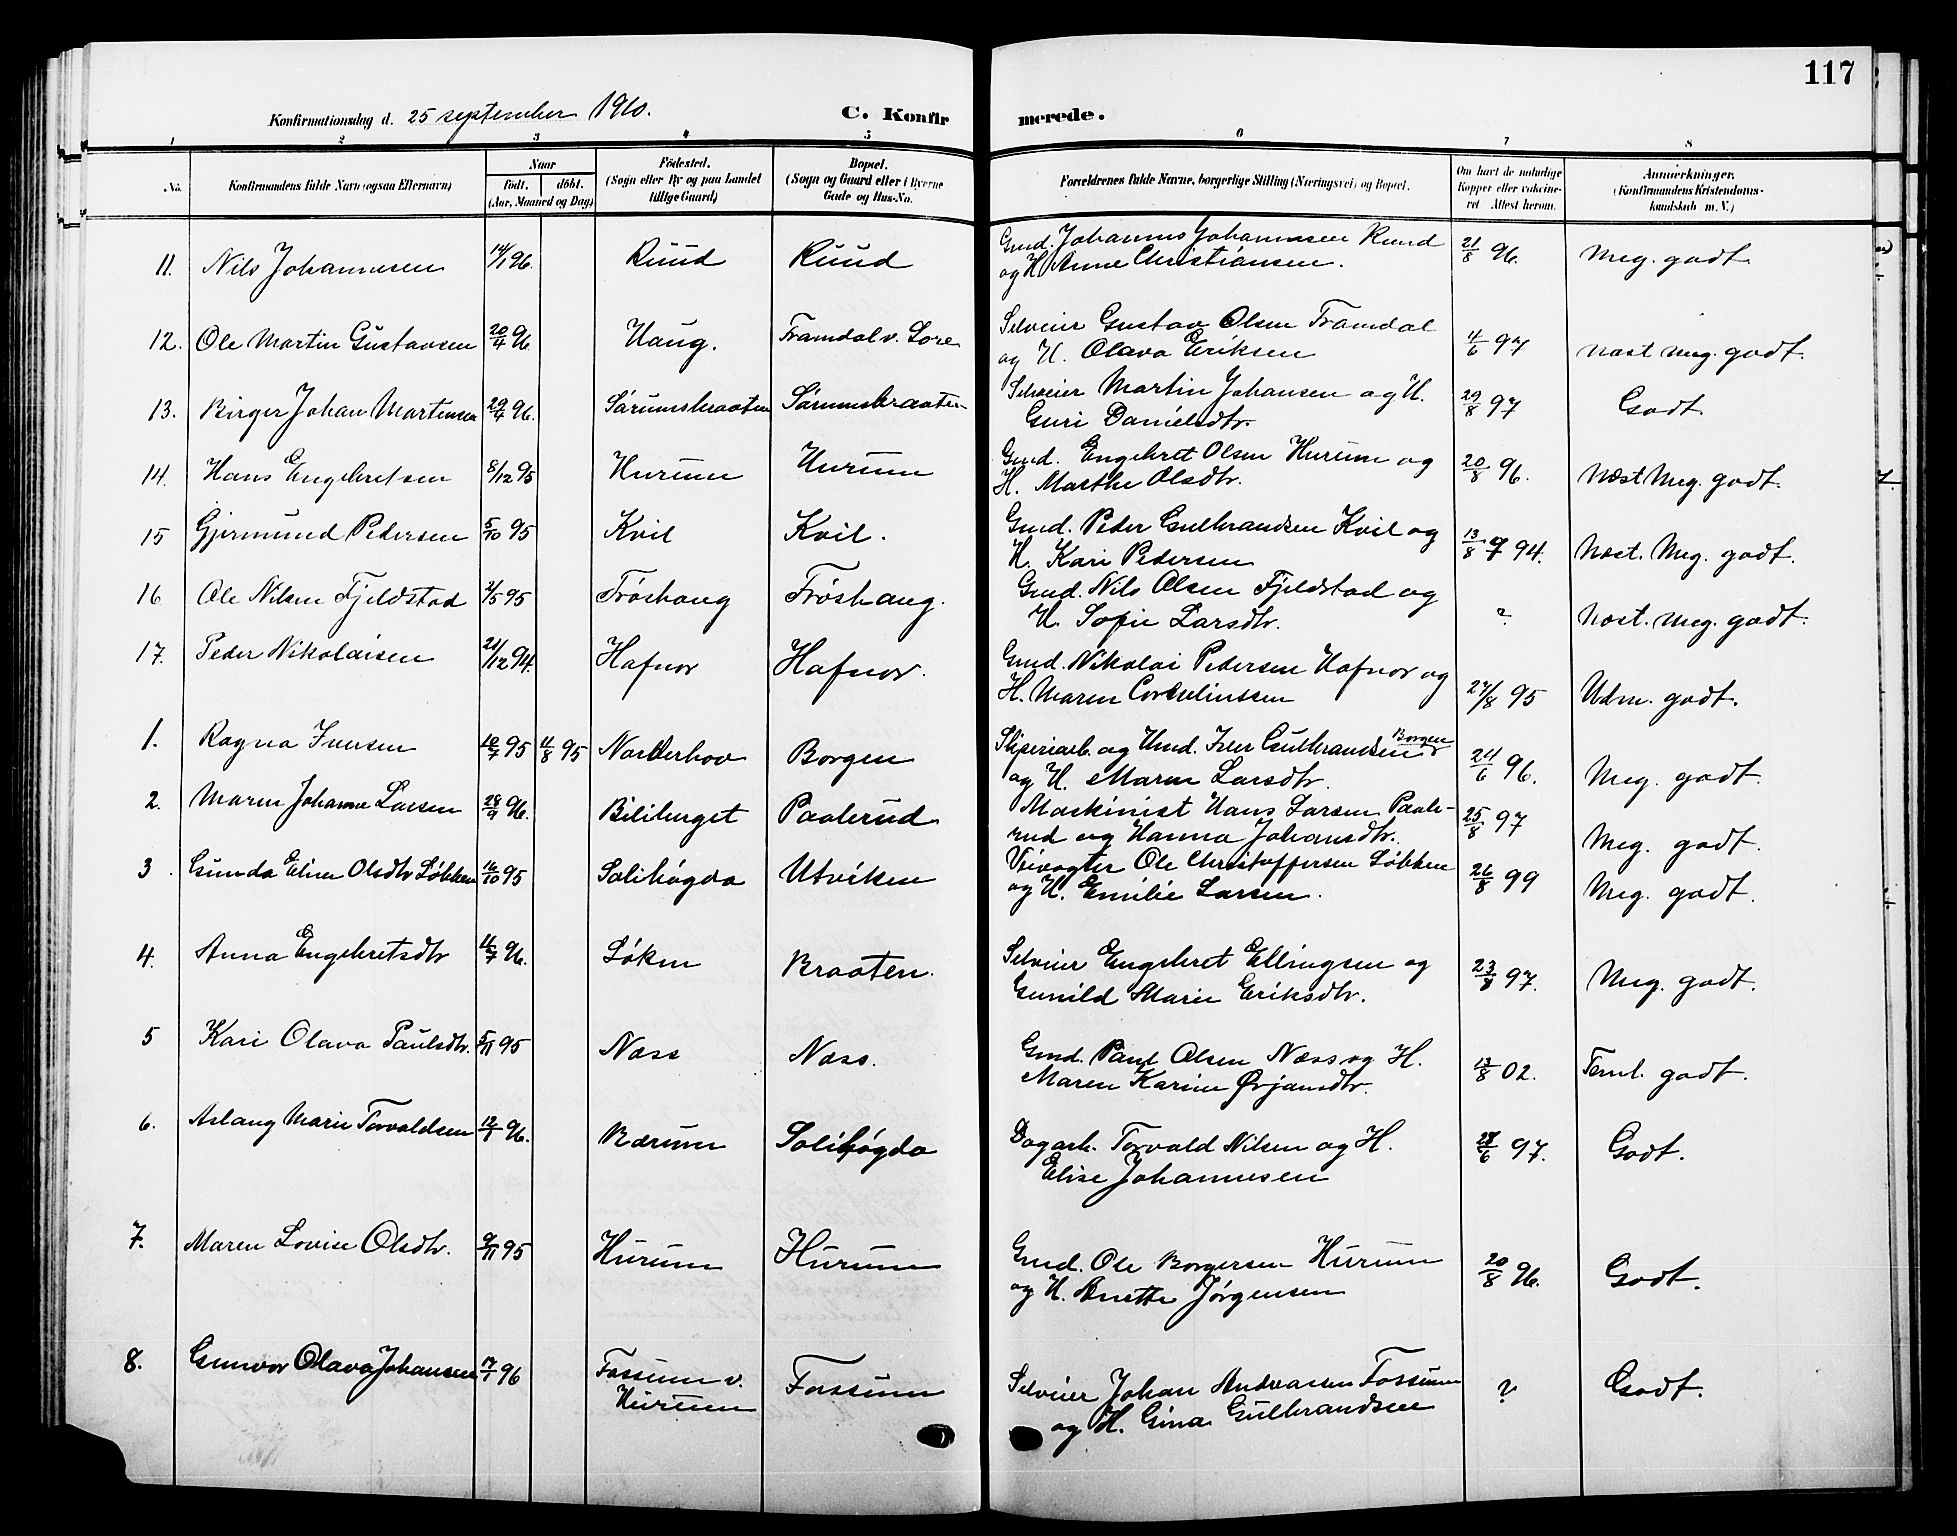 117
Konfirmationsdag d. 25 september 1910. C. Konfirmerede.
1 2 3 4 5 6 7 8
No. Konfirmandens fulde Navn (ogsaa Efternavn) Naar født. døbt. (Aar, Maaned og Dag) Fødested. (Sogn eller By og paa Landet tillige Gaard) Bopæl. (Sogn og Gaard eller i Byerne Gade og Hus-No. Forældrenes fulde Navne, borgerlige Stilling (Næringsvei) og Bopæl. Om havt de naturlige Kopper eller vaccineret Attest herom. Anmærkninger. (Konfirmandens Kristendomskundskab m. V.)
11. Nils Johannesen 14/1 96. Ruud Ruud Gmd. Johannes Johannesen Ruud 21/8 96. Meg. godt.
og H. Anne Christiansen.
12. Ole Martin Gustavsen 20/4 96 Haug. Framdal v. Sore Selveier Gustav Olsen Framdal 4/6 97 Næst meg. godt.
og H. Olava Eriksen
13. Birger Johan Martinsen 29/4 96. Sørumsbraaten Sørumsbraaten Selveier Martin Johansen og H. 29/8 97 Godt.
Guri Danielsdtr.
14. Hans Engebretsen 8/12 95 Hurum Hurum Gmd. Engebret Olsen Hurum og 20/8 96. Næst Meg. godt.
H. Marthe Olsdtr.
15 Gjermund Pedersen 5/10 95 Kvil Kvil. Gmd. Peder Gulbrandsen Kvil og 13/8 94. Næst. Meg. godt.
H. Kari Pedersen
16 Ole Nilsen Fjeldstad 2/5 95 Frøshaug Frøshaug. Gmd. Nils Olsen Fjeldstad og ? Næst. meg. godt.
H. Sofie Larsdtr.
17. Peder Nikolaisen 21/12 94. Hafnor Hafnor. Gmd. Nikolai Pedersen Hafnor og 27/8 95 Udm. godt.
H. Maren Corneliussen
1. Ragna Iversen 10/7 95 11/8 95 Norderhov Borgen Sliperiarb. og Hmd. Iver Gulbrandsen Borgen 24/6 96. Meg. godt.
og H. Maren Larsdtr.
2. Maren Johanne Larsen 28/9 96. Biliberget Paalerud Maskinist Hans Larsen Paale- 25/8 97 Meg. godt.
rud og Hanna Johansdtr.
3. Gunda Eline Olsdtr Løkken 16/10 95 Solihøgda Utviken Veivogter Ole Christoffersen Løkken 26/8 99 Meg. godt.
og H. Emilie Larsen.
4. Anna Engebretsdtr 16/7 96. Løken Braaten. Selveier Engebret Ellingsen og 23/8 97. Meg. godt.
Gunild Marie Eriksdtr.
5 Kari Olava Paulsdtr. 5/11 95 Næss Næss. Gmd. Paul Olsen Næss og H. 13/8 02. Teml. godt.
Maren Karine Ørjansdtr.
6. Aslaug Marie Torvaldsen 12/1 96. Bærum Solihøgda Dagarb. Torvald Nilsen og H. 28/6 97. Godt.
Elise Johannesen
7. Maren Lovise Olsdtr. 9/11 95 Hurum Hurum Gmd. Ole Borgersen Hurum 20/8 96. Godt.
og H. Anette Jørgensen
8. Gunvor Olava Johansen 17/1 96 Fossum v. Hurum Fossum Selveier Johan Andreasen Fossum ? Godt.
og H. Gina Gulbrandsen